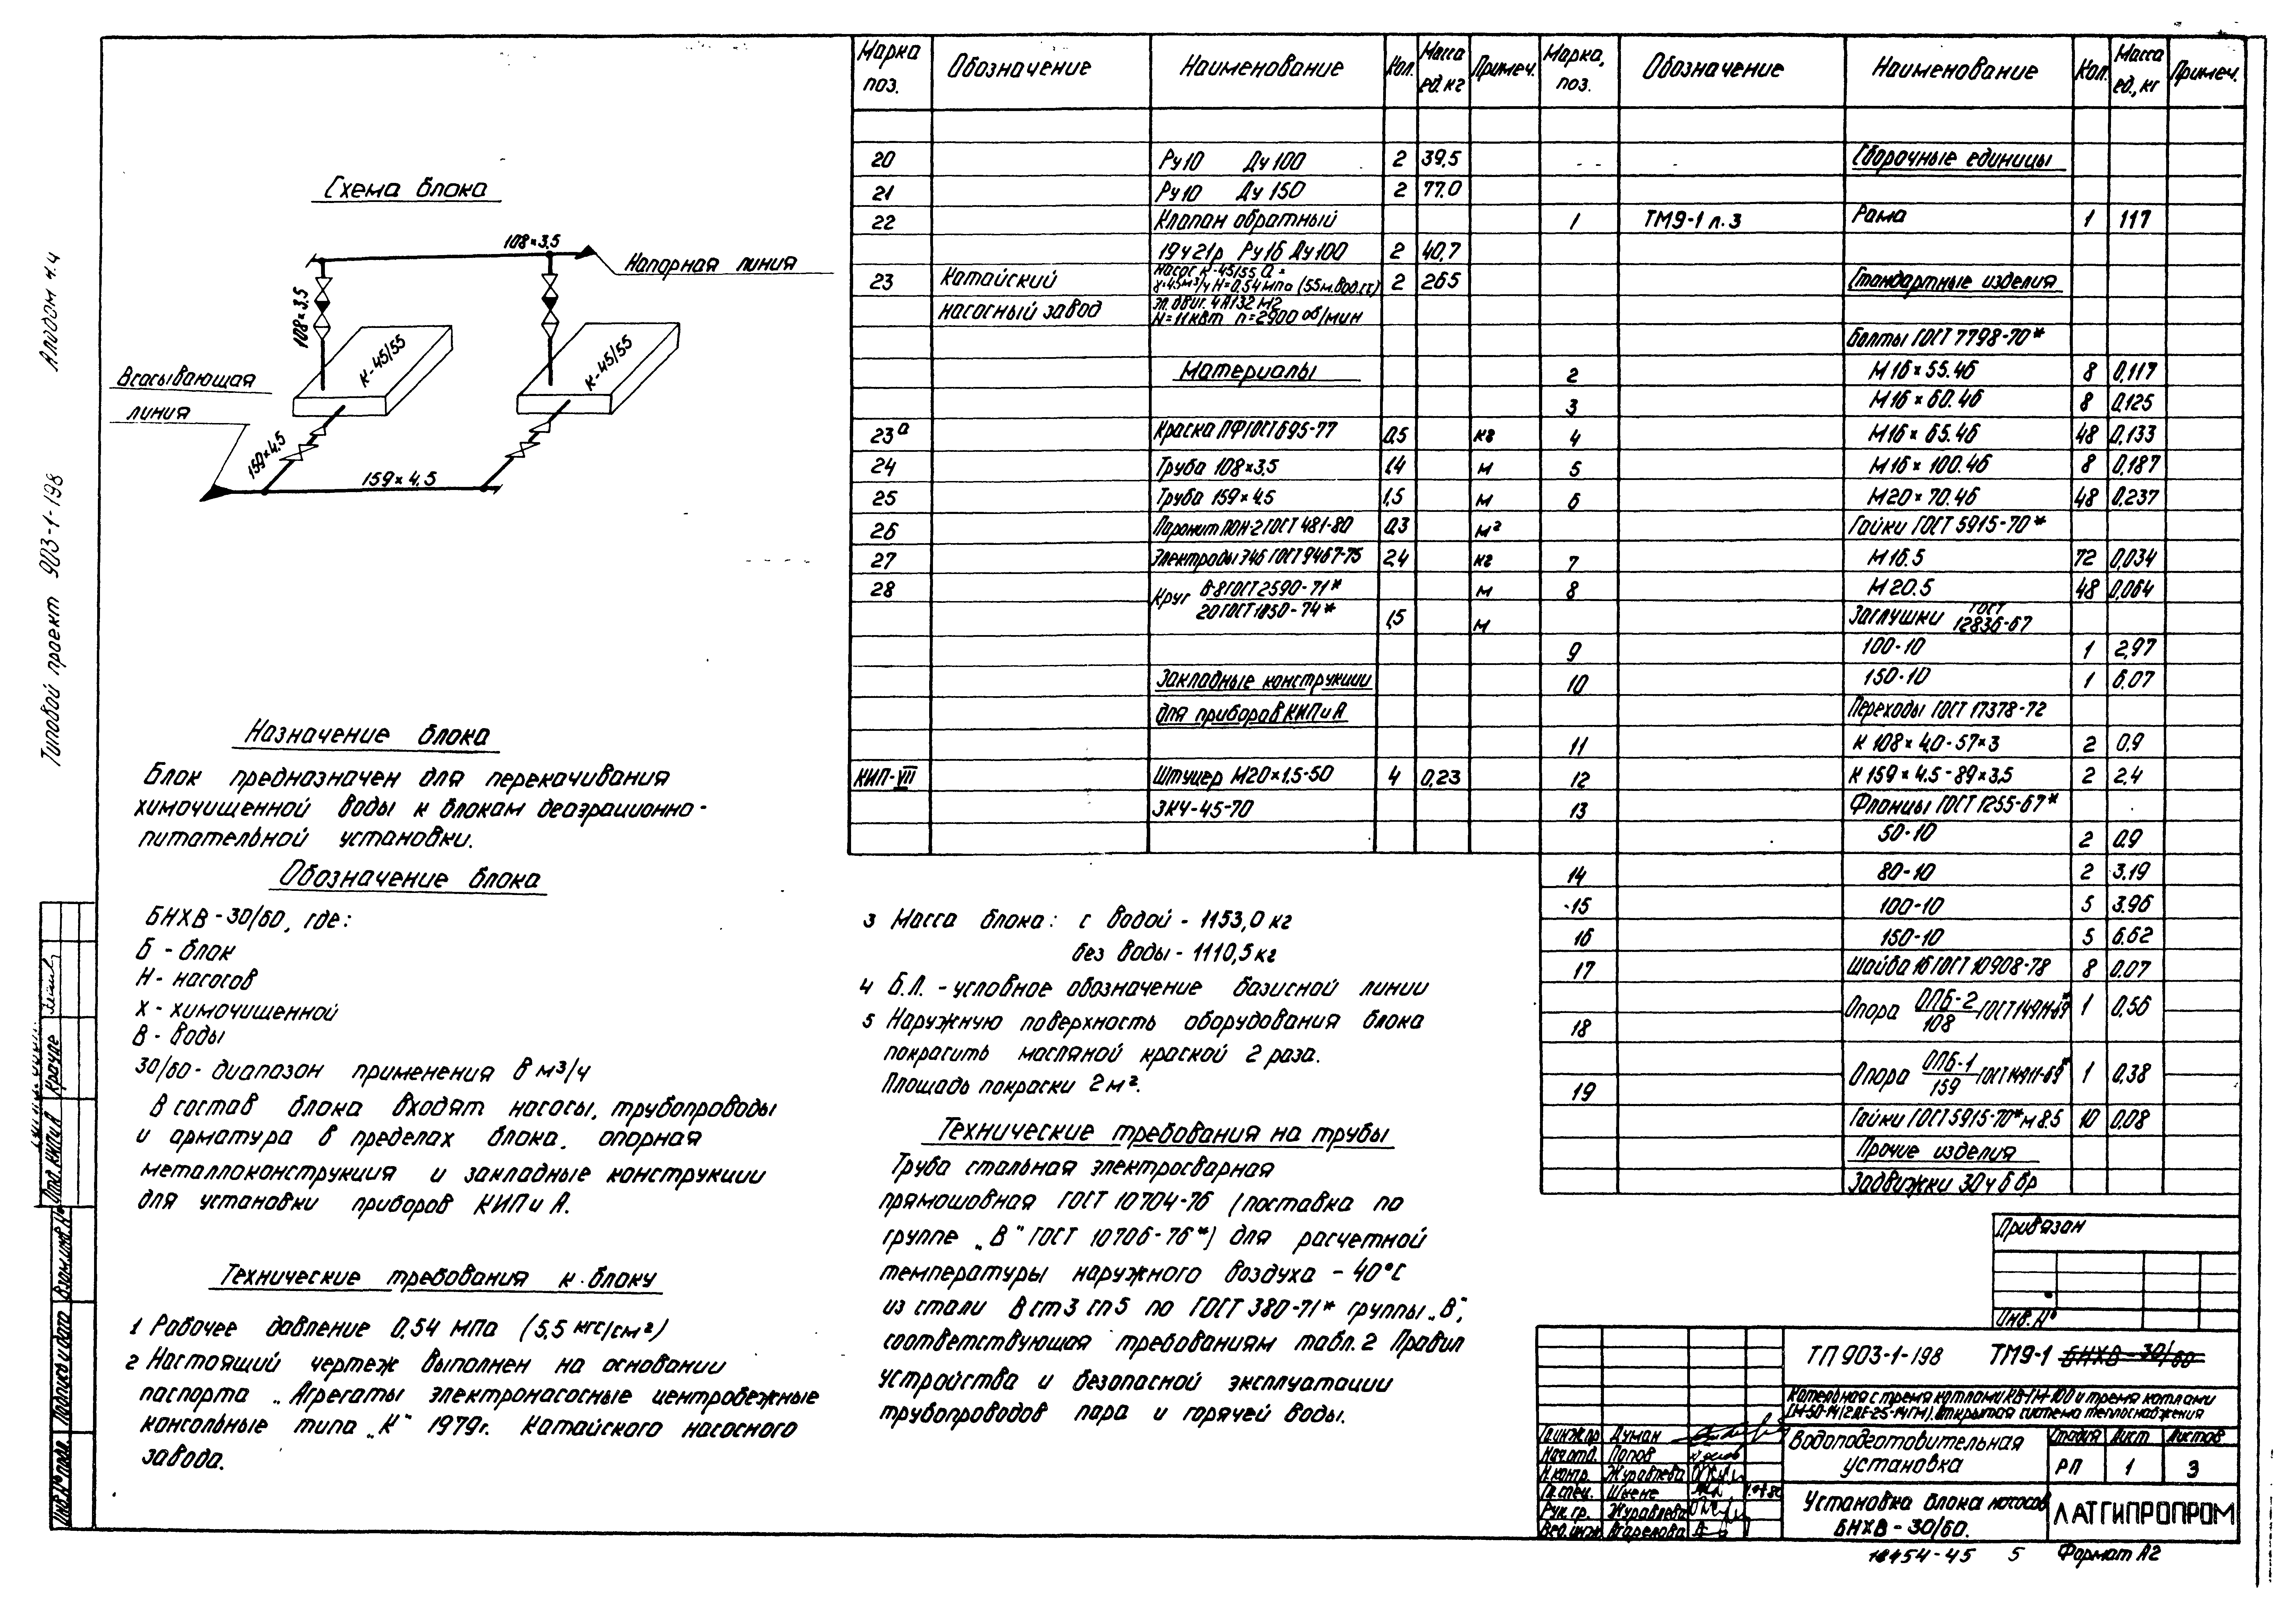 Альбом 4.4
Типовой проект 903-1-198
Схема блока
108×3,5
Напорная линия
108×3,5
К-45/55
К-45/55
Всасывающая
линия
159×4.5
159×4.5
Назначение блока
Блок предназначен для перекачивания
химочищенной воды к блокам деаэрационно-
питательной установки.
Обозначение блока
БНХВ-30/60, где:
Б - блок
Н - насосов
Х - химочищенной
В - воды
30/60 - диапазон применения в м³/ч
В состав блока входят насосы, трубопроводы
и арматура в пределах блока, опорная
металлоконструкция и закладные конструкции
для установки приборов КИП и А.
Технические требования к блоку
1 Рабочее давление 0,54 МПа (5,5 кгс/см²)
2 Настоящий чертеж выполнен на основании
паспорта „Агрегаты электронасосные центробежные
консольные типа „К" 1979г. Катайского насосного
завода.
3 Масса блока: с водой - 1153,0 кг
без воды - 1110,5 кг
4 Б.Л. - условное обозначение базисной линии
5 Наружную поверхность оборудования блока
покрасить масляной краской 2 раза.
Площадь покраски 2 м².
Технические требования на трубы
Труба стальная электросварная
прямошовная ГОСТ 10704-76 (поставка по
группе „В" ГОСТ 10706-76*) для расчетной
температуры наружного воздуха -40°С
из стали Вст3 сп5 по ГОСТ 380-71* группы „В",
соответствующая требованиям табл.2 Правил
устройства и безопасной эксплуатации
трубопроводов пара и горячей воды.
Марка поз. Обозначение Наименование Кол. Масса ед. кг Примеч.
20 Ру10 Ду100 2 39,5
21 Ру10 Ду 150 2 77.0
22 Клапан обратный
19ч21р Ру16 Ду100 2 40,7
23 Катайский насос К-45/55 Q = 45м³/ч Н=0.54мпа (55м.вод.ст) 2 265
насосный завод эл. двиг. 4А132М2 N=11квт n=2900 об/мин
Материалы
23а Краска ПФ ГОСТ 695-77 0,5 кг
24 Труба 108×3,5 1,4 м
25 Труба 159×4.5 1,5 м
26 Паронит ПОН-2 ГОСТ 481-80 0,3 м²
27 Электроды Э46 ГОСТ 9467-75 2,4 кг
28 Круг В-8 ГОСТ 2590-71* м
20 ГОСТ 1050-74* 1,5 м
Закладные конструкции
для приборов КИП и А
КИП-VII Штуцер М20×1.5-50 4 0,23
ЗК4-45-70
Марка, поз. Обозначение Наименование Кол. Масса ед., кг Примеч.
Сборочные единицы
1 ТМ9-1 л.3 Рама 1 117
Стандартные изделия
Болты ГОСТ 7798-70*
2 М16×55.46 8 0,117
3 М16×60.46 8 0,125
4 М16×65.46 48 0,133
5 М16×100.46 8 0,187
6 М20×70.46 48 0,237
Гайки ГОСТ 5915-70*
7 М16.5 72 0,034
8 М20.5 48 0,064
Заглушки ГОСТ 12836-67
9 100-10 1 2,97
10 150-10 1 6.07
Переходы ГОСТ 17378-72
11 К 108×4,0-57×3 2 0.9
12 К 159×4.5-89×3.5 2 2.4
13 Фланцы ГОСТ 1255-67*
50-10 2 0.9
14 80-10 2 3.19
15 100-10 5 3.96
16 150-10 5 6.62
17 Шайба 16 ГОСТ 10908-78 8 0.07
18 Опора ОПБ-2/108 ГОСТ 14911-69* 1 0,56
19 Опора ОПБ-1/159 ГОСТ 14911-69* 1 0,38
Гайки ГОСТ 5915-70* М8.5 10 0,08
Прочие изделия
Задвижки 30ч6бр
Привязан
Инв.№
ТП 903-1-198 ТМ9-1 БНХВ-30/60
Котельная с тремя котлами КВ-ГМ-100 и тремя котлами
ГМ-50-14 (2ДЕ-25-14ГМ). Открытая система теплоснабжения
Водоподготовительная
установка
Стадия Лист Листов
РП 1 3
Установка блока насосов
БНХВ-30/60.
ЛАТГИПРОПРОМ
Гл.инж.пр Думан
Нач.отд. Попов
Н.контр. Журавлева
Гл.спец. Шкене
Рук.гр. Журавлева
Вед.инж.
18454-45 5 Формат А2
Отд. КИП и А Крауле
Взам.инв.№
Подпись и дата
Инв.№ подл.